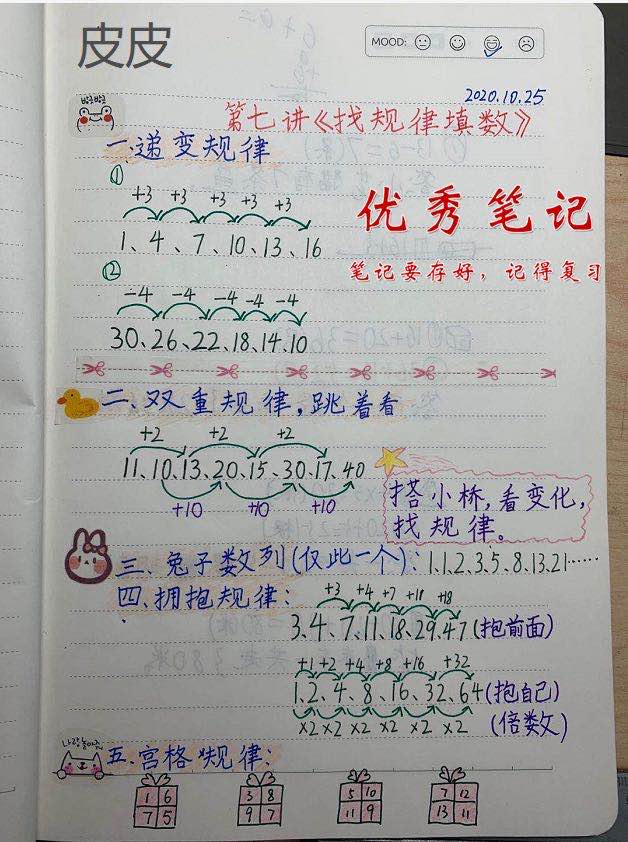 皮皮
MOOD:
2020.10.25
第七讲《找规律填数》
一.递变规律
优秀笔记
笔记要存好，记得复习
①
+3 +3 +3 +3 +3
1、4、7、10、13、16
②
-4 -4 -4 -4 -4
30、26、22、18、14、10
二、双重规律,跳着看
+2 +2 +2
11、10、13、20、15、30、17、40
+10 +10 +10
搭小桥,看变化,
找规律。
三、兔子数列(仅此一个):1、1、2、3、5、8、13、21……
四、拥抱规律:
+3 +4 +7 +11 +18
3、4、7、11、18、29、47(抱前面)
+1 +2 +4 +8 +16 +32
1、2、4、8、16、32、64(抱自己)
×2 ×2 ×2 ×2 ×2 ×2 (倍数)
五.宫格规律:
1 6 3 8 5 10 7 12
7 5 9 7 11 9 13 11